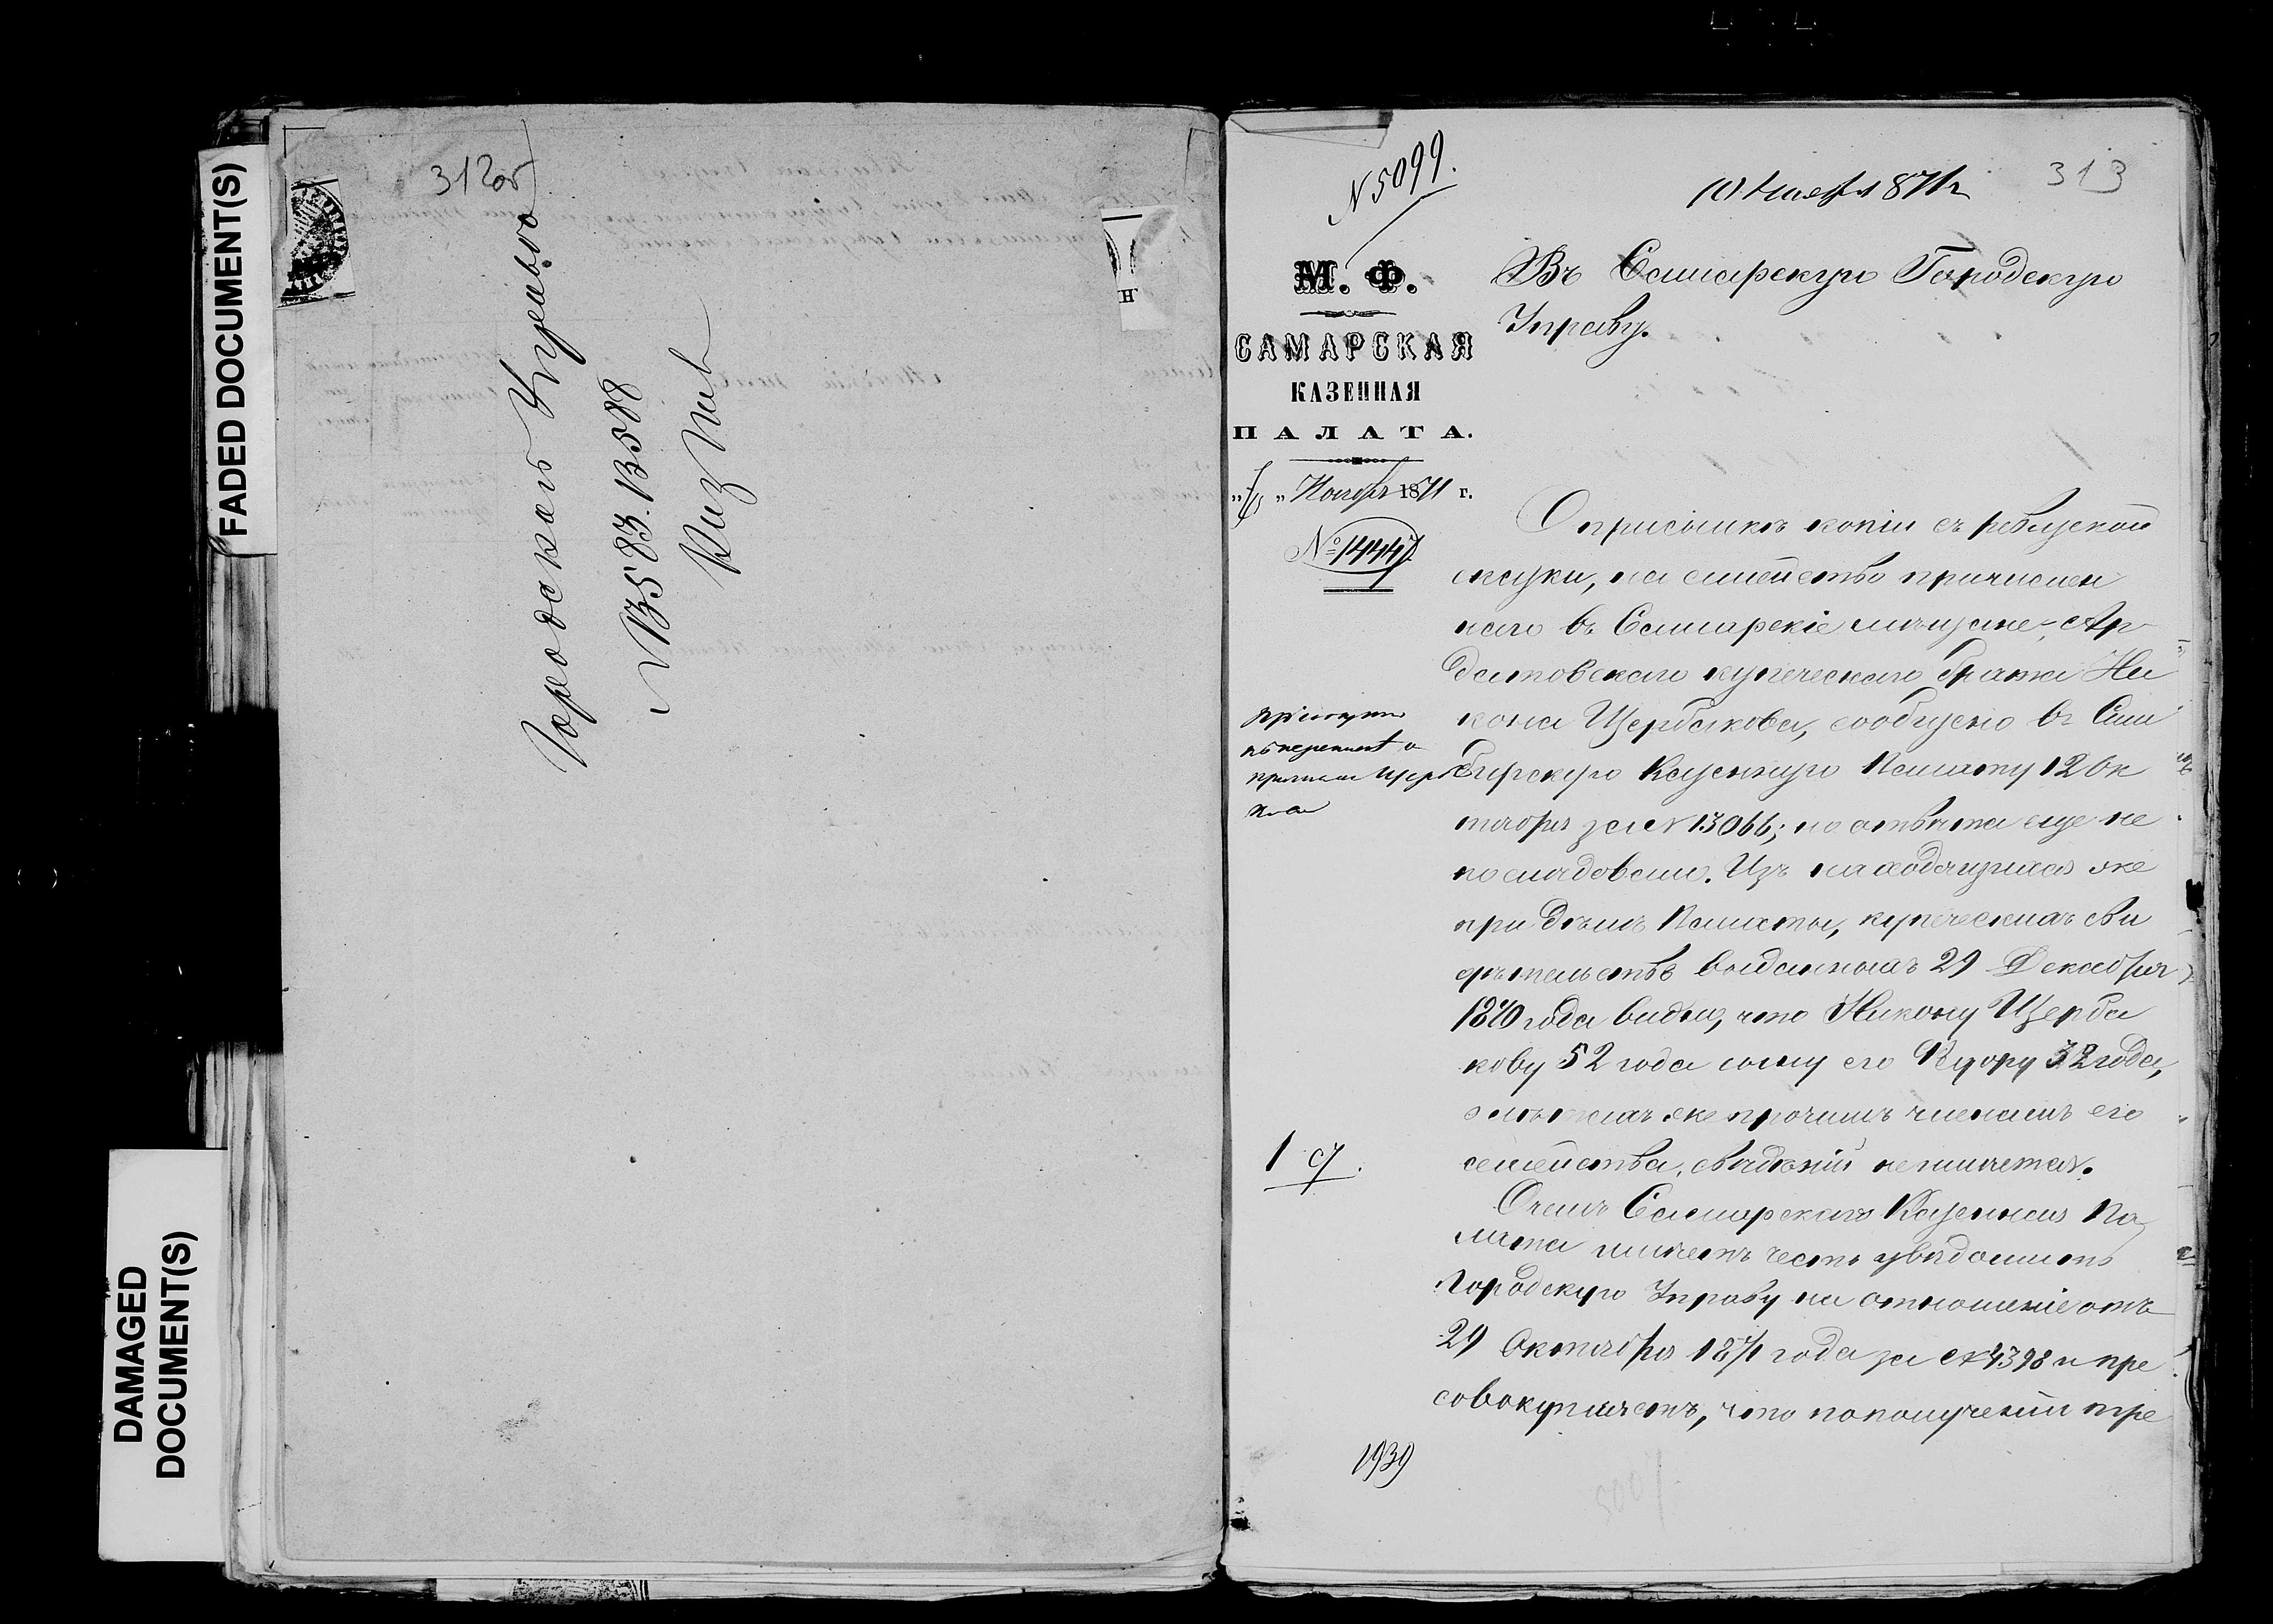 FADED DOCUMENT(S)
DAMAGED
DOCUMENT(S)
312об
Городскаго
313
N 5099.
10 Ноября 1871 г.
М. Ф.
САМАРСКАЯ
КАЗЕННАЯ
ПАЛАТА.
Ноября 1871 г.
№ 14447
Въ Самарскую Городскую
Управу.
О присылкѣ копіи съ ревизской
сказки, на семейство причислен
наго въ Самарскіе мѣщане, Ар
датовскаго купеческаго брата Ни
кона Щербакова, сообщено въ Сим
бирскую Казенную Палату 12 Ок
тября за № 13066; но отвѣта еще не
послѣдовало. Изъ находящихся же
при дѣлѣ Палаты, купеческихъ сви
дѣтельствъ выданныхъ 29 Декабря
1870 года видно, что Никону Щерба
кову 52 года сыну его 32 года,
о лѣтахъ же прочимъ членамъ его
семейства, свѣдѣній не имѣется.
О чемъ Самарская Казенная Па
лата имѣетъ честь увѣдомить
Городскую Управу на отношеніе отъ
29 Октября 1871 года за № 4398 и при
совокупляетъ, что по полученіи тре
1939